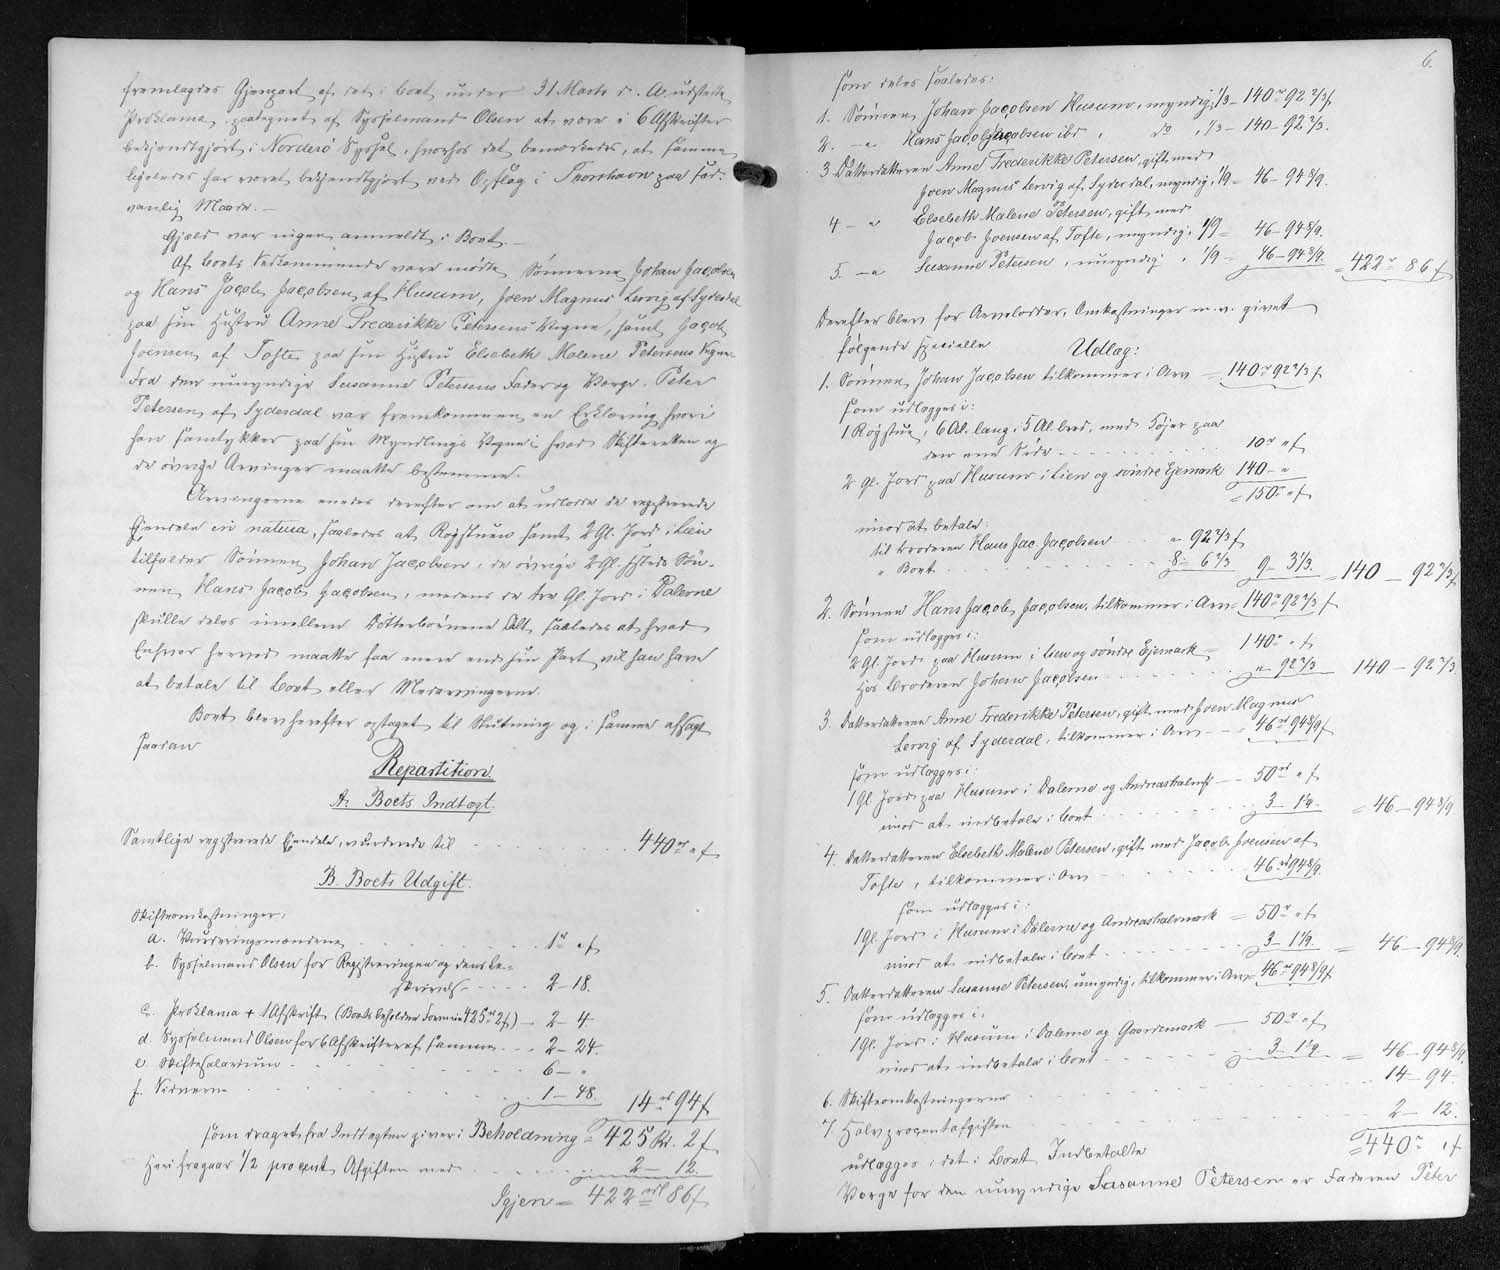 fremlagdes Gjenpart af det i Boet under 31 Marts d. A. udstedte
Proklama, paategnet af Sysselmand Olsen at være i 6 Afskrifter
bekjendtgjort i Norderø Syssel, hvorhos det bemærkedes, at samme
ligeledes har været bekjendtgjort ved Opslag i Thorshavn paa sæd-
vanlig Maade. —
Gjæld var ingen anmeldt i Boet. —
Af Boets Vedkommende vare mødte Sønnerne Johan Jacobsen
og Hans Jacob Jacobsen af Husum, Joen Magnus Lervig af Syderdal
paa sin Hustru Anne Frederikke Petersens Vegne, samt Jacob
Joensen af Tofte paa sin Hustru Elsebeth Malene Petersens Vegne.
Fra den umyndige Susanne Petersens Fader og Værge, Peter
Petersen af Syderdal var fremkommen en Erklæring hvori
han samtykker paa sin Myndlings Vegne i hvad Skifteretten og
de øvrige Arvinger maatte bestemme.
Arvingerne enedes derefter om at udlodde de registrerede
Ejendele in natura, saaledes at Røgstuen samt 2 Gl. Jord i Lien
tilfalder Sønnen Johan Jacobsen, de øvrige 2 Gl. sstds Søn-
nen Hans Jacob Jacobsen, medens de tre Gl. Jord i Dalerne
skulle deles imellem Døtterbørnene Alt saaledes at hvad
Enhver herved maatte faa mere end sin Part vil han have
at betale til Boet eller Medarvingerne.
Boet blev herefter optaget til Slutning og i samme afsagt
saadan
Repartition
A. Boets Indtægt.
Samtlige registrerede Ejendele, vurderede til . . . . 440 rd " s
B. Boets Udgift.
Skifteomkostninger:
a. Vurderingsmændene . . . . 1 rd " s
b. Sysselmand Olsen for Registreringen og dens Be-
skrivelse . . . . 2 — 18.
c. Proklama + 1 Afskrift (Boets beholden Formue 425 rd 2 s) — 2 — 4
d. Sysselmand Olsen for 6 Afskrifter af samme . . . 2 — 24.
e. Skiftesalarium . . . . 6 — "
f. Vidnerne . . . . 1 — 48. 14 rd 94 s
som draget fra Indtægten giver i Beholdning = 425 Rd. 2 s
Heri fragaar 1/2 procent Afgiften med . . . . 2 — 12.
Igjen = 422 rdl 86 s
6.
som deles saaledes:
1. Sønnen Johan Jacobsen Husum, myndig, 1/3 — 140 rd 92 2/3 s
2. — " Hans Jacob Jacobsen ibd , do , 1/3 — 140 — 92 2/3.
3 Datterdatteren Anne Frederikke Petersen, gift med
Joen Magnus Lervig af Syderdal, myndig, 1/9 = 46 — 94 8/9.
4 — " Elsebeth Malene Petersen, gift med
Jacob Joensen af Tofte, myndig, 1/9 = 46 — 94 8/9.
5. — " Susanne Petersen, umyndig , 1/9 = 46 — 94 8/9. = 422 rd 86 s
Derefter blev for Arvelodder, Omkostninger m. v. givet
følgende specielle Udlæg:
1. Sønnen Johan Jacobsen tilkommer i Arv = 140 rd 92 2/3 s
som udlægges i:
1 Røgstue, 6 Al. lang, 5 Al. bred, med Køjer paa
den ene Side . . . . 10 rd " s
2 Gl. Jord paa Husum i Lien og søndre Ejemark 140 — "
= 150 rd " s
imod at betale:
til Broderen Hans Jac. Jacobsen . . " 92 2/3 s
" Boet . . . . 8 — 6 2/3 9 — 3 1/3. = 140 — 92 2/3 s
2. Sønnen Hans Jacob Jacobsen, tilkommer i Arv = 140 rd 92 2/3 s
som udlægges i:
2 Gl. Jord paa Husum i Lien og søndre Ejemark = 140 rd " s
Hos Broderen Johan Jacobsen . . . . " 92 2/3 140 — 92 2/3.
3. Datterdatteren Anne Frederikke Petersen, gift med Joen Magnus
Lervig af Syderdal, tilkommer i Arv — — = 46 rd 94 8/9 s
som udlægges i:
1 Gl. Jord paa Husum i Dalerne og — — 50 rd " s
imod at indbetale i Boet . . . . 3 — 1 1/9. = 46 — 94 8/9.
4. Datterdatteren Elsebeth Malene Petersen, gift med Jacob Joensen af
Tofte, tilkommer i Arv . . . . 46 rd 94 8/9.
som udlægges i:
1 Gl. Jord i Husum i Dalerne og = 50 rd " s
imod at indbetale i Boet . . . . 3 — 1 1/9. = 46 — 94 8/9.
5. Datterdatteren Susanne Petersen, umyndig, tilkommer i Arv 46 rd 94 8/9 s
som udlægges i:
1 Gl. Jord i Husum i Dalerne og — 50 rd " s
imod at indbetale i Boet . . . . 3 — 1 1/9 = 46 — 94 8/9.
6. Skifteomkostningerne . . . . 14 — 94.
7. Halvprocentafgiften . . . . 2 — 12.
udlægges i det i Boet Indbetalte = 440 rd " s
Værge for den umyndige Susanne Petersen er Faderen Peter